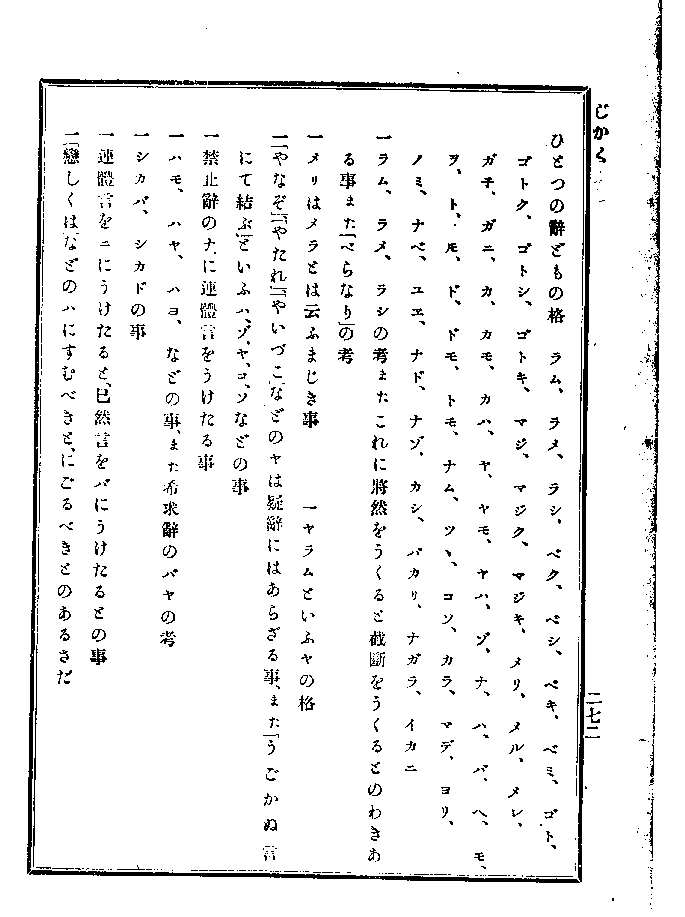 じかく
二七二
ひとつの辭どもの格　ラム、ラメ、ラシ、ベク、ベシ、ベキ、ベミ、ゴト、
ゴトク、ゴトシ、ゴトキ、マジ、マジク、マジキ、メリ、メル、メレ、
ガテ、ガニ、カ、カモ、カハ、ヤ、ヤモ、ヤハ、ゾ、ナ、ハ、バ、ヘ、モ、
ヲ、ト、モ、ド、ドモ、トモ、ナム、ツヽ、コソ、カラ、マデ、ヨリ、
ノミ、ナベ、ユヱ、ナド、ナゾ、カシ、バカリ、ナガラ、イカニ
一ラム、ラメ、ラシの考またこれに將然をうくると截斷をうくるとのわきあ
る事また「べらなり」の考
一メリはメラとは云ふまじき事　一ヤラムといふヤの格
一「やなぞ」「やたれ」「やいづこ」などのヤは疑辭にはあらざる事、また「うごかぬ言
にて結ぶ」といふハ、ゾ、ヤ、コソなどの事
一禁止辭のナ、に連體言をうけたる事
一ハモ、ハヤ、ハヨ、などの事、また希求辭のバヤの考
一シカバ、シカドの事
一連體言をニにうけたると、已然言をバにうけたるとの事
一「戀しくは」などのハにすむべきと、にごるべきとのあるさだ